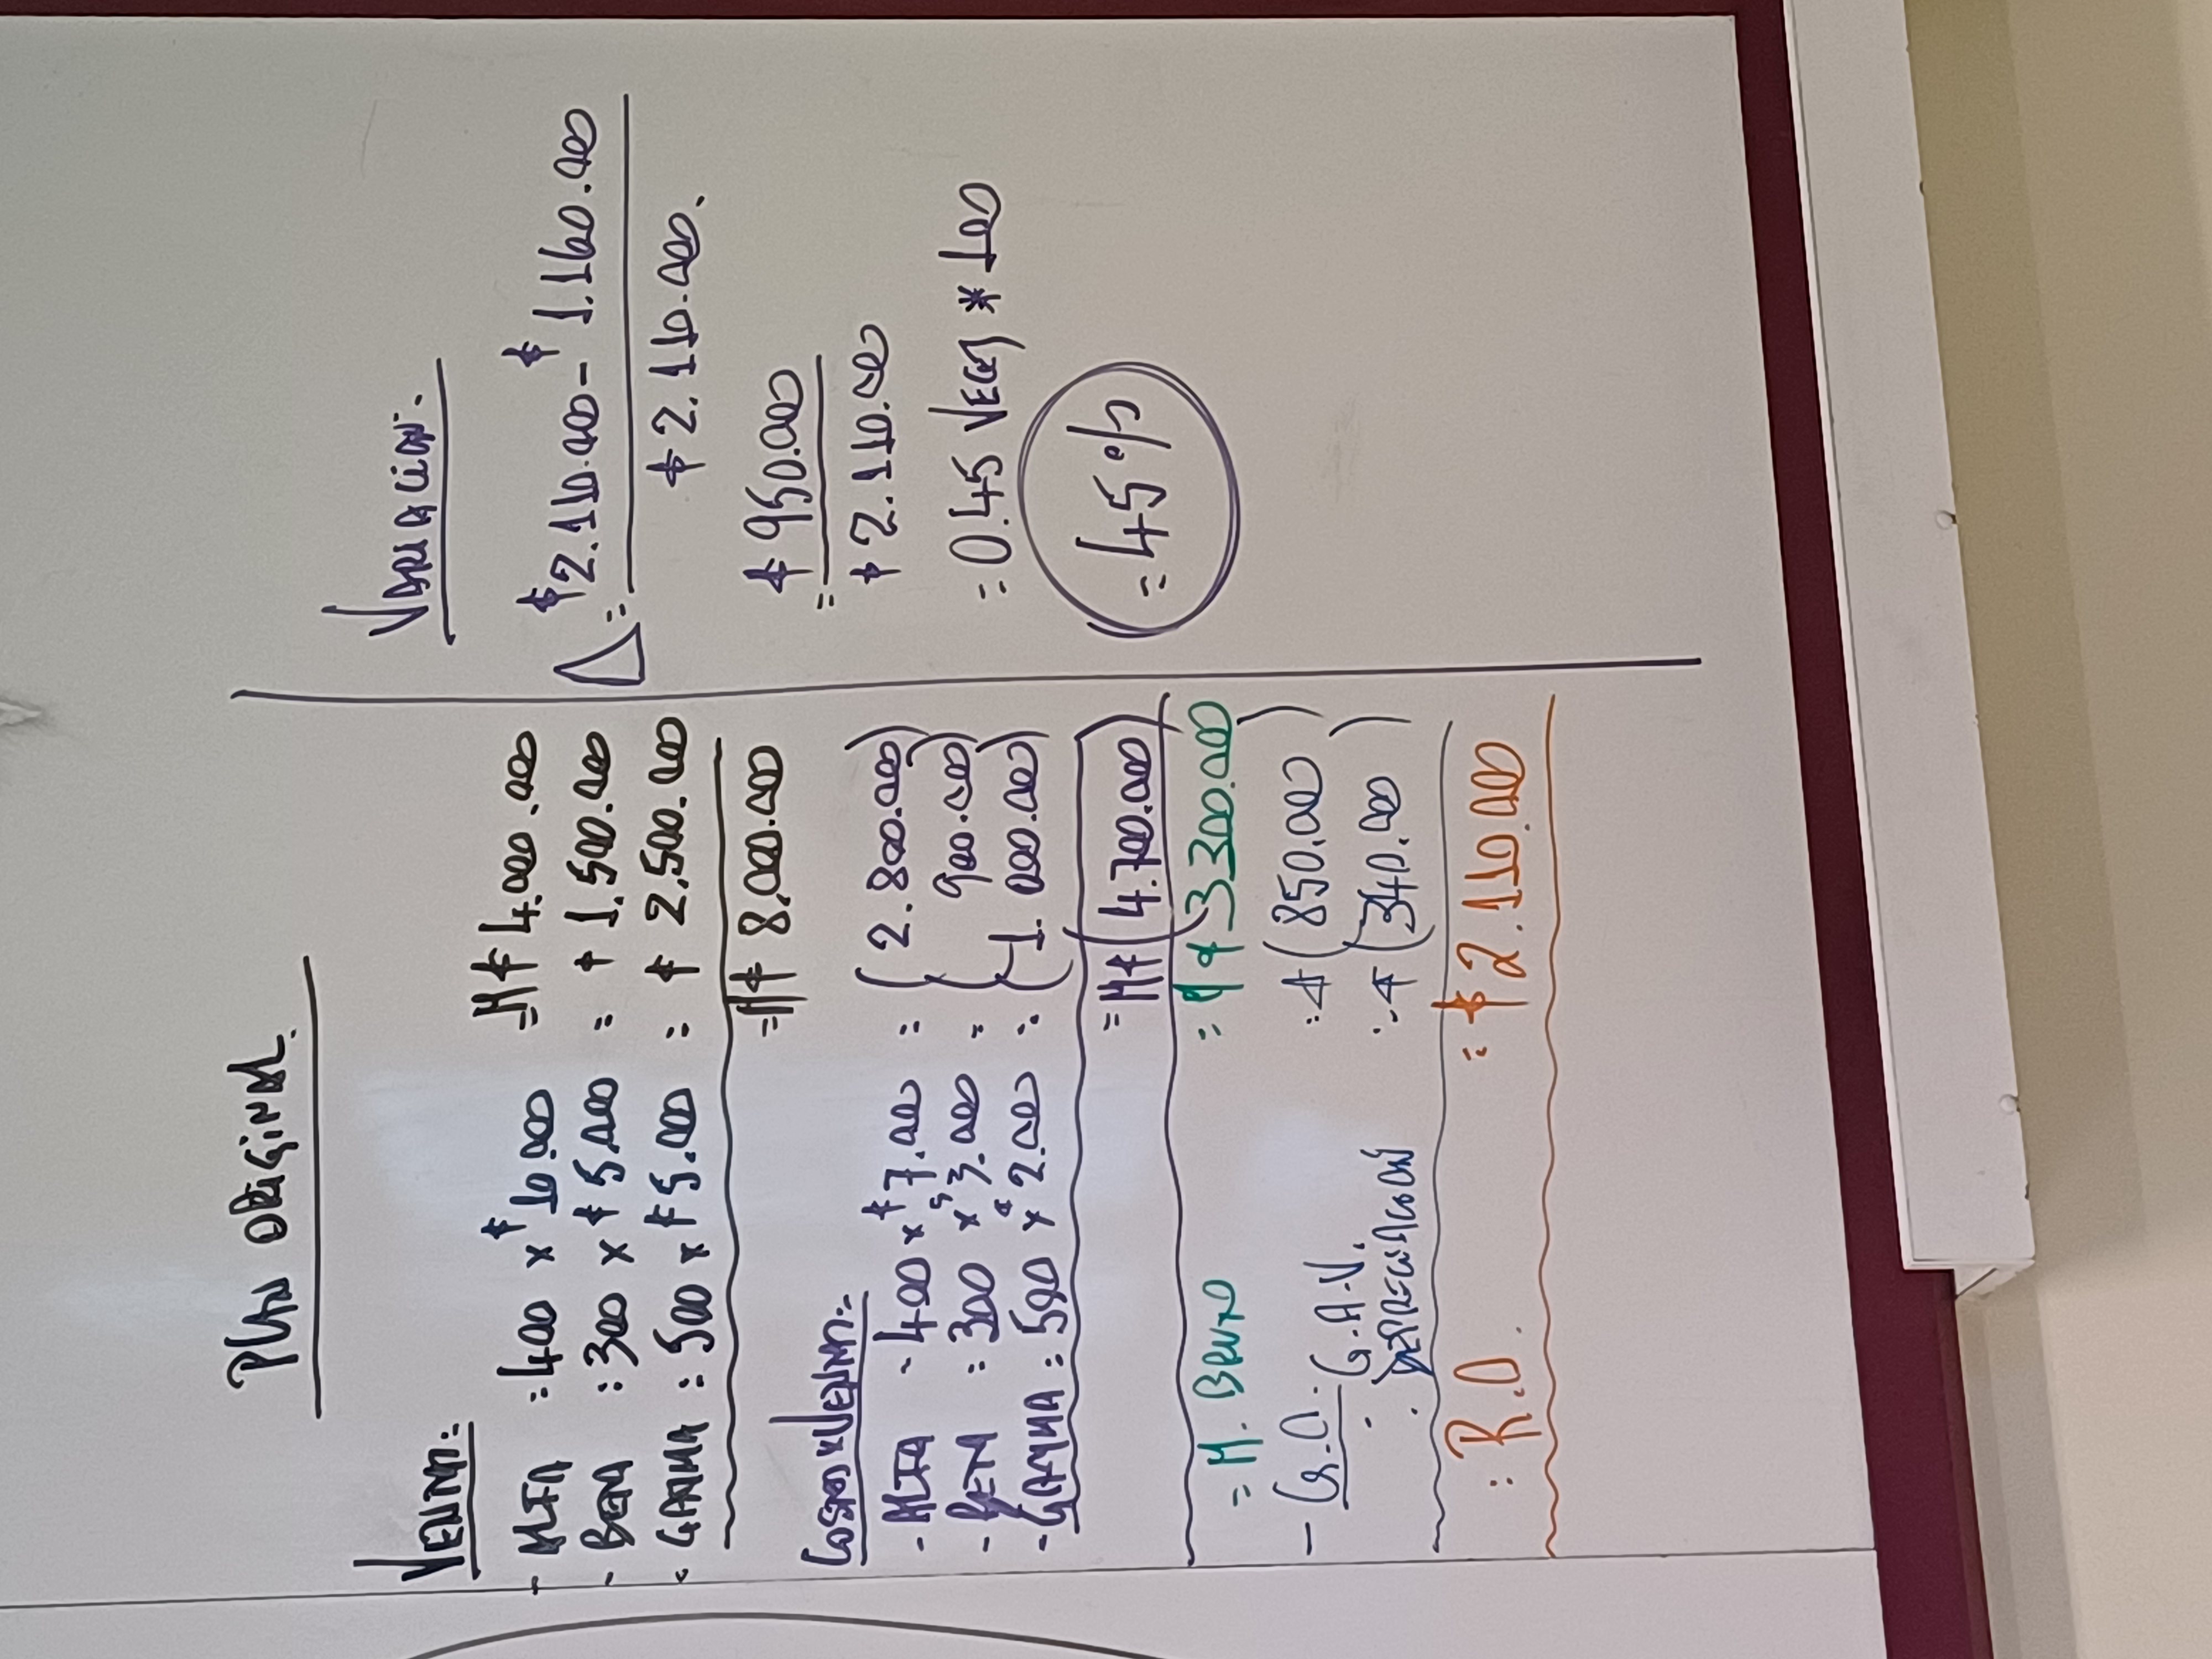 PLAN ORIGINAL.
VENTAS:
- ALFA : 400 x $10.000 = M$ 4.000.000
- BETA : 300 x $5.000 = $ 1.500.000
- GAMMA : 500 x $5.000 = $ 2.500.000
= M$ 8.000.000
COSTOS x VENTAS:
- ALFA - 400 x $7.000 = (2.800.000)
- BETA : 300 x $3.000 = (900.000)
- GAMMA : 500 x $2.000 = (1.000.000)
= M$ (4.700.000)
= M. BRUTO = M$ 3.300.000
- G.O. : $ (850.000)
. G.A.V.
. DEPRECIACION : $ (340.000)
: R.O. = $2.110.000
VARIACION.
Δ = $2.110.000 - $1.160.000
$2.110.000.
= $950.000
$2.110.000
= 0.45 VECES * 100
= 45%